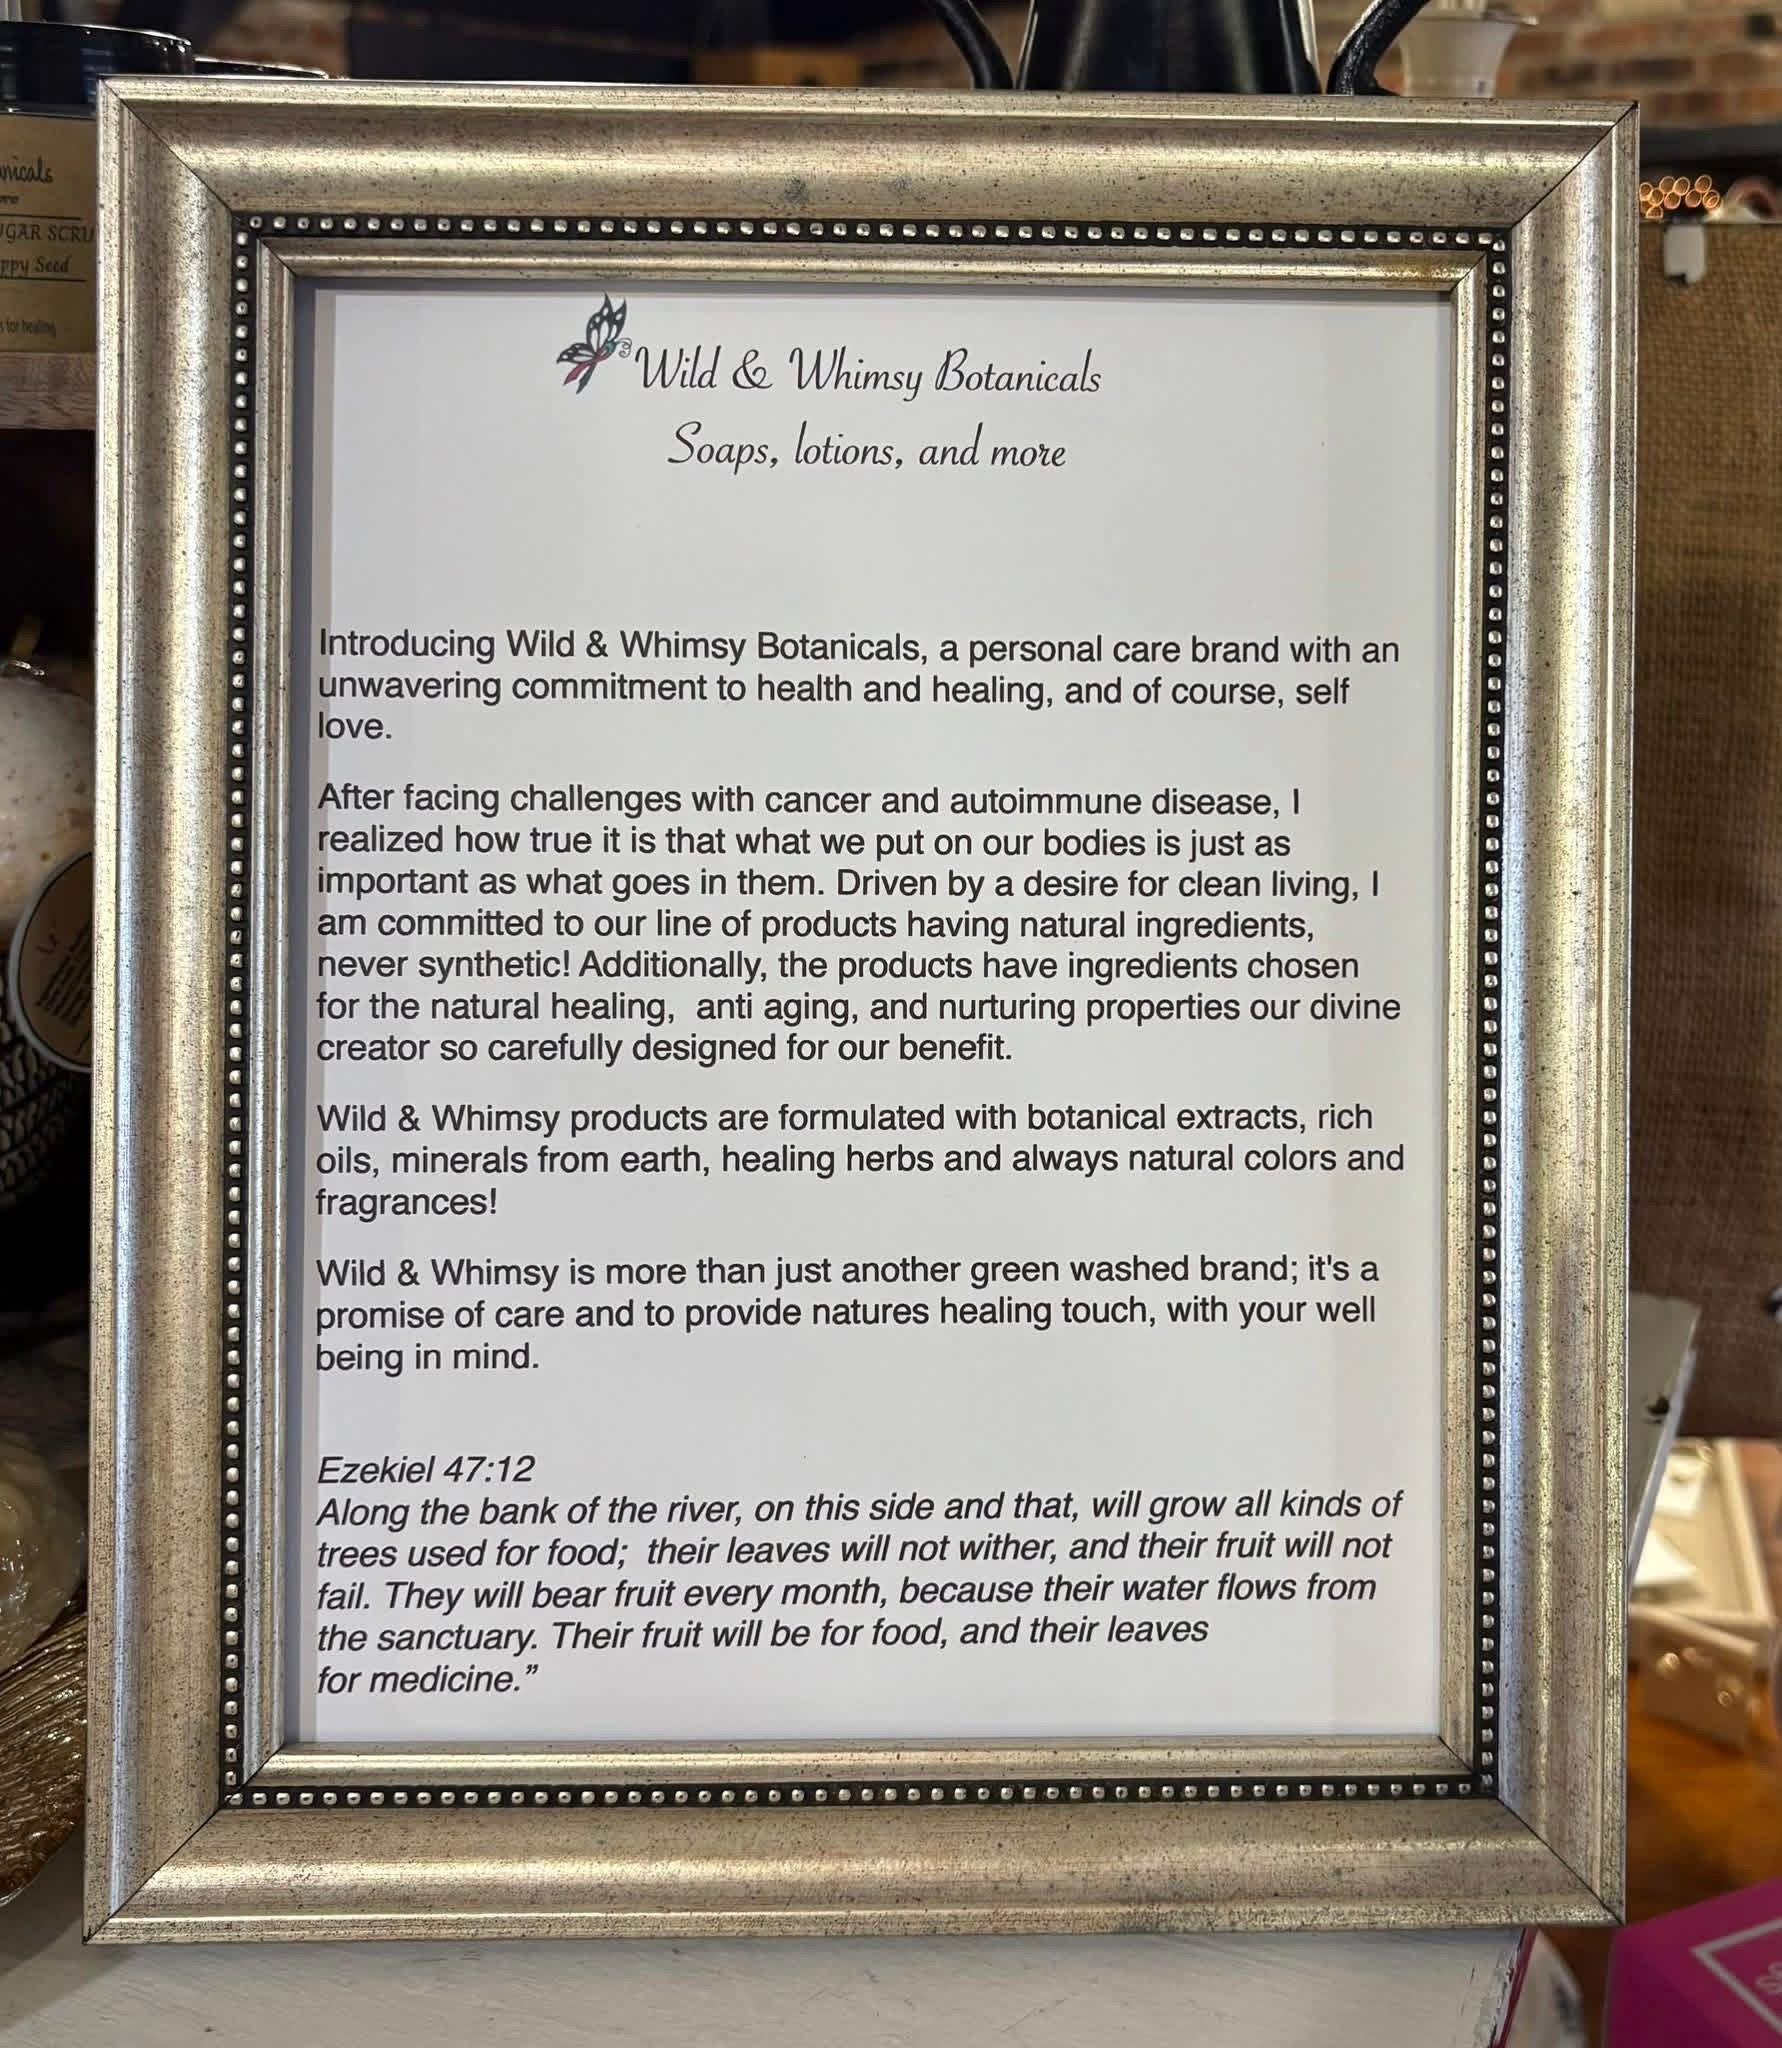 Wild & Whimsy Botanicals
Soaps, lotions, and more
Introducing Wild & Whimsy Botanicals, a personal care brand with an
unwavering commitment to health and healing, and of course, self
love.
After facing challenges with cancer and autoimmune disease, I
realized how true it is that what we put on our bodies is just as
important as what goes in them. Driven by a desire for clean living, I
am committed to our line of products having natural ingredients,
never synthetic! Additionally, the products have ingredients chosen
for the natural healing,  anti aging, and nurturing properties our divine
creator so carefully designed for our benefit.
Wild & Whimsy products are formulated with botanical extracts, rich
oils, minerals from earth, healing herbs and always natural colors and
fragrances!
Wild & Whimsy is more than just another green washed brand; it's a
promise of care and to provide natures healing touch, with your well
being in mind.
Ezekiel 47:12
Along the bank of the river, on this side and that, will grow all kinds of
trees used for food;  their leaves will not wither, and their fruit will not
fail. They will bear fruit every month, because their water flows from
the sanctuary. Their fruit will be for food, and their leaves
for medicine.”
nicals
UGAR SCRU
ppy Seed
s for healing